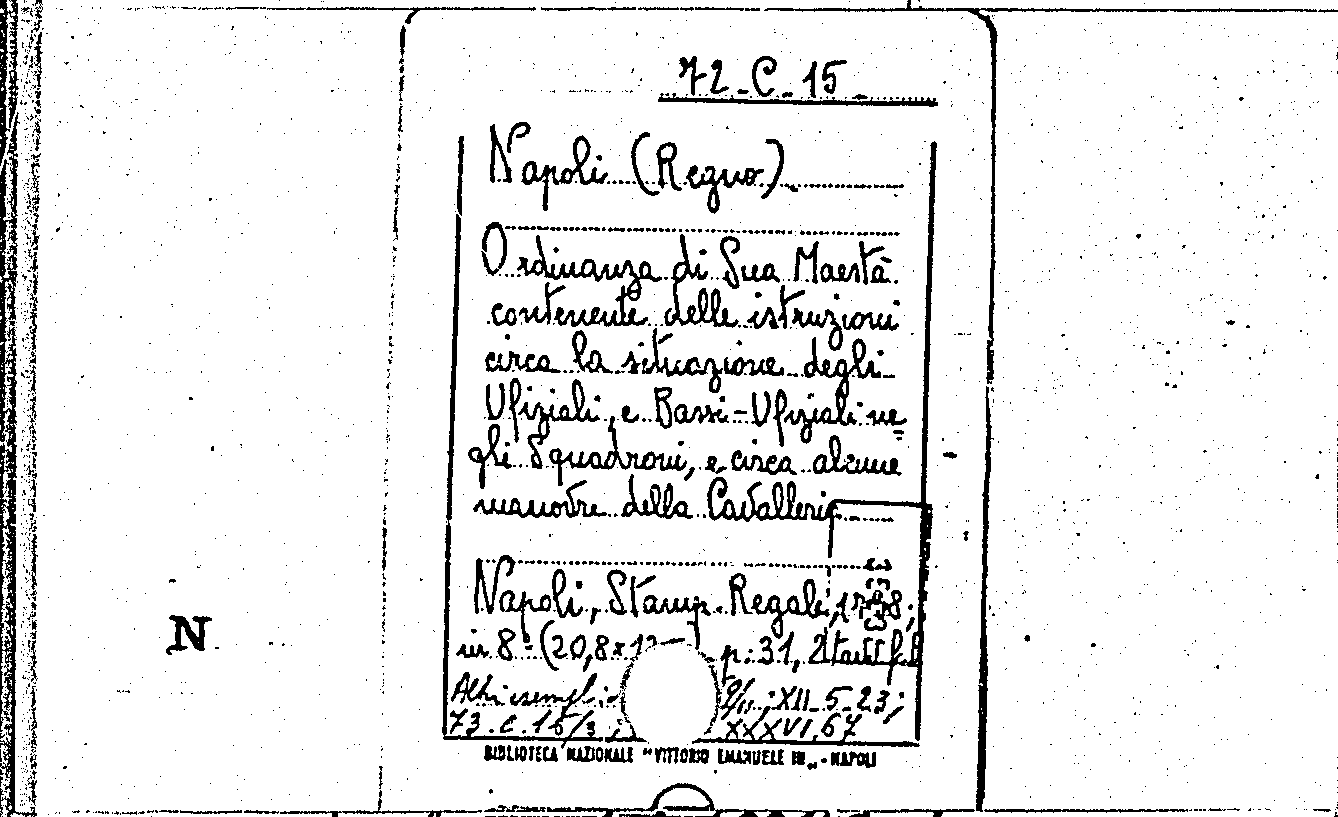 72-C-15
Napoli (Regno)
Ordinanza di Sua Maestà
contenente delle istruzioni
circa la situazione degli
Ufiziali, e Bassi-Ufiziali ne=
gli Squadroni, e circa alcune
manovre della Cavalleria
Napoli, Stamp. Regale,
N
in 8° (20,8x p. 31, 2
Altri XII-5-23;
73.C.15/3; XXXVI,67
BIBLIOTECA NAZIONALE "VITTORIO EMANUELE III„ - NAPOLI